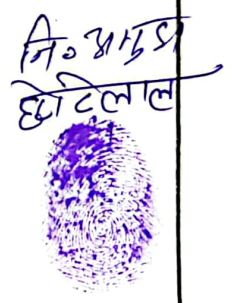 नि० अगुठा
छोटेलाल